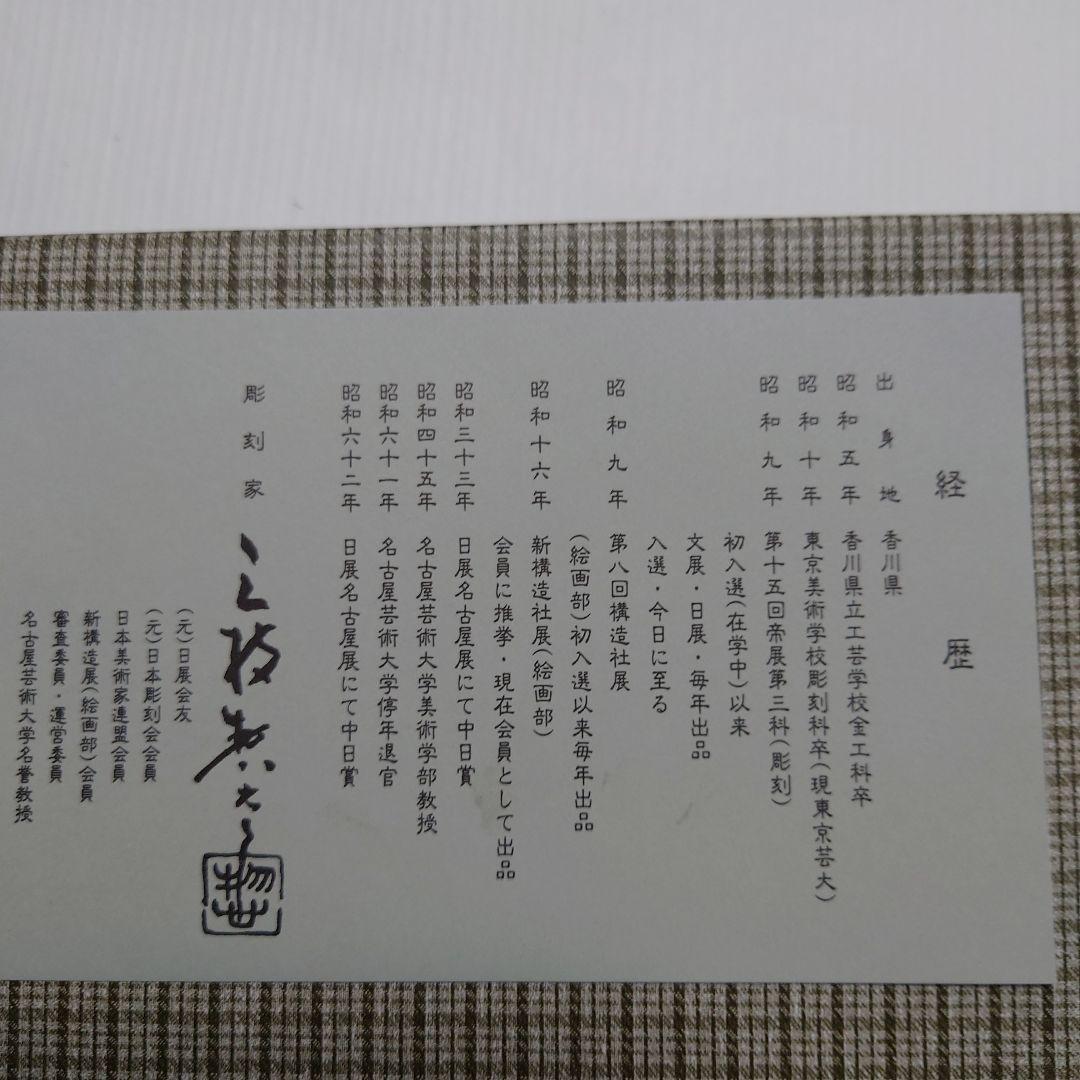 経歴
出身地 香川県
昭和五年 香川県立工芸学校金工科卒
昭和十年 東京美術学校彫刻科卒(現東京芸大)
昭和九年 第十五回帝展第三科(彫刻)
初入選(在学中)以来
文展・日展・毎年出品
入選・今日に至る
昭和九年 第八回構造社展
(絵画部)初入選以来毎年出品
昭和十六年 新構造社展(絵画部)
会員に推挙・現在会員として出品
昭和三十三年 日展名古屋展にて中日賞
昭和四十五年 名古屋芸術大学美術学部教授
昭和六十一年 名古屋芸術大学停年退官
昭和六十二年 日展名古屋展にて中日賞
彫刻家
(元)日展会友
(元)日本彫刻会会員
日本美術家連盟会員
新構造展(絵画部)会員
審査委員・運営委員
名古屋芸術大学名誉教授